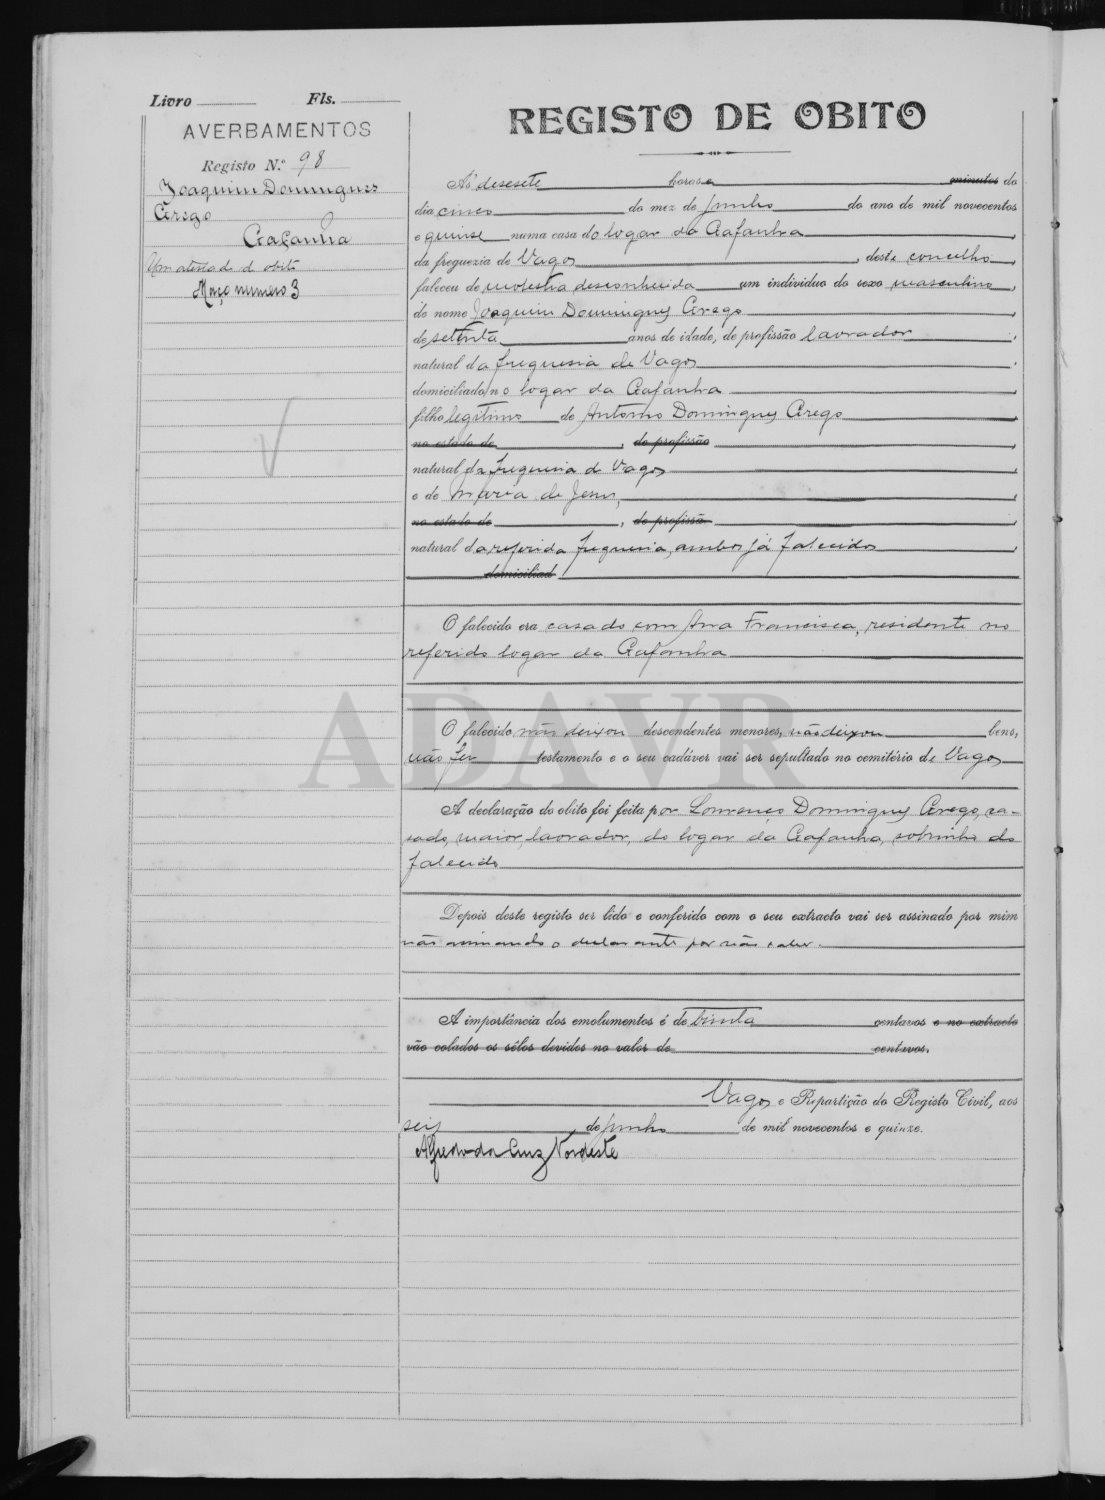 Livro Fls.
AVERBAMENTOS
Registo N.º 98
Joaquim Domingues
Crego
Gafanha
Um atestado d obito
Março numero 3
REGISTO DE OBITO
Ás desesete horas e minutos do
dia cinco do mez de Junho do ano de mil novecentos
e quinse numa casa do logar da Gafanha
da freguezia de Vagos, deste concelho,
faleceu de molestia desconhecida um individuo do sexo masculino,
de nome Joaquim Domingues Crego
de setenta anos de idade, de profissão lavrador,
natural da freguesia de Vagos
domiciliado no logar da Gafanha
filho legitimo de Antonio Domingues Crego
no estado de, de profissão
natural da freguesia de Vagos
e de Maria de Jesus,
no estado de, de profissão
natural da referida freguesia, ambos já falecidos
domiciliad
O falecido era casado com Ana Francisca, residente no
referido logar da Gafanha
O falecido não deixou descendentes menores, não deixou bens,
não fez testamento e o seu cadáver vai ser sepultado no cemitério de Vagos
A declaração do obito foi feita por Lourenço Domingues Crego, ca-
sado, maior, lavrador, do logar da Gafanha, sobrinho do
falecido
Depois deste registo ser lido e conferido com o seu extracto vai ser assinado por mim
não assinando o declarante por não saber.
A importância dos emolumentos é de trinta centavos e no extracto
vão colados os sêlos devidos no valor de centavos.
Vagos e Repartição do Registo Civil, aos
seis de Junho de mil novecentos e quinze.
Alfredo da Cruz Nordeste
ADAVR